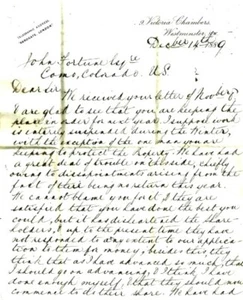 2 Victoria Chambers,
Westminster
December 14th 1889
John Fortune Esqre
Como, Colorado. U.S.
Dear Sir
We received your letter of Novbr
& are glad to see that you are keeping the
in order for next year. Support work
is entirely suspended during the Winter,
with the exception of the one man you are
keeping to protect the property. We have had a
great deal of trouble on this side, chiefly
owing to disappointments arising from the
fact of there being no return this year.
We cannot blame you for it & they are
satisfied that you have done the best you
could, but it has disheartened the share-
holders, & up to the present time they have
not responded to any extent to our applica-
tions to them for money, besides this they
think that as I had advanced so much, that
I should go on advancing, & I think I have
done enough myself, & that they should now
commence to do their share. We have had